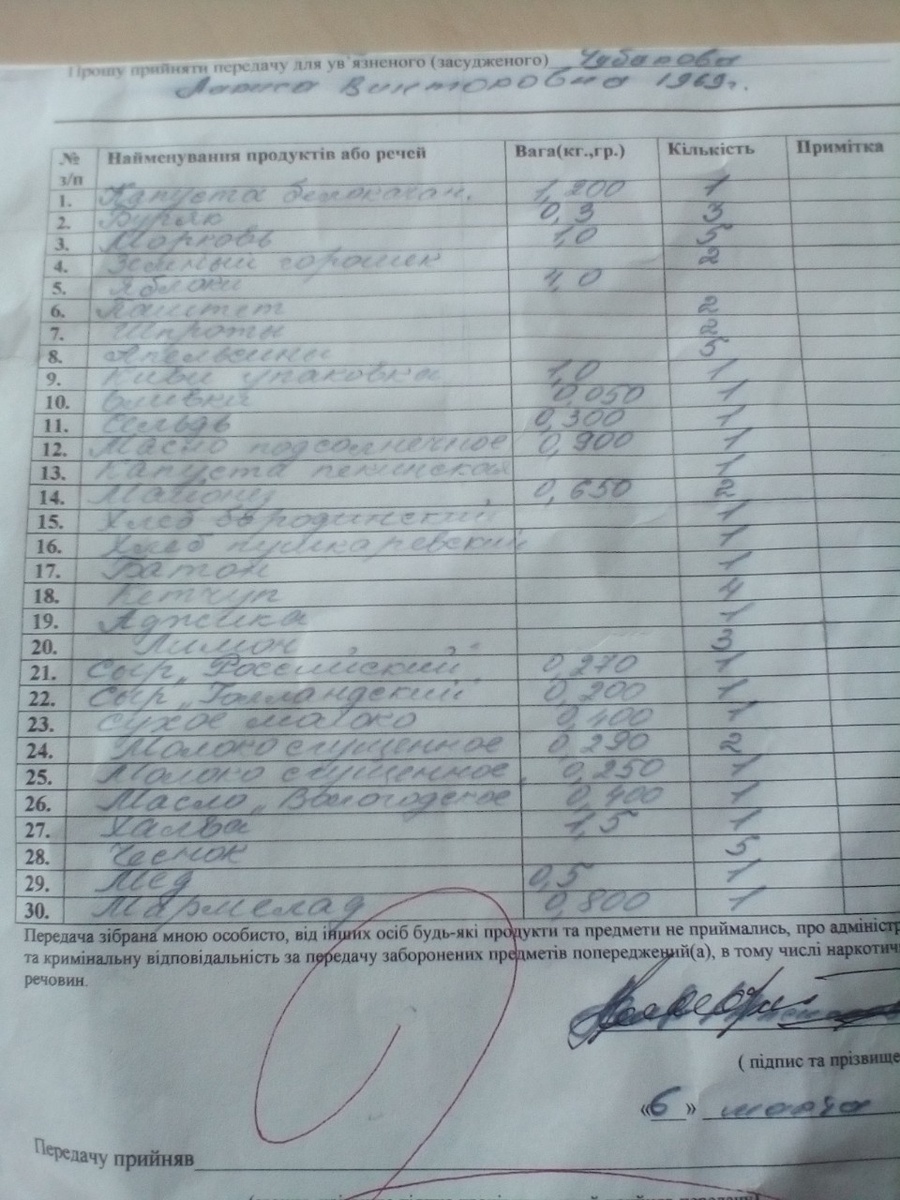 Прошу прийняти передачу для ув'язненого (засудженого) Чубарова
Лариса Викторовна 1969г.
№ з/п Найменування продуктів або речей Вага(кг.,гр.) Кількість Примітка
1. Капуста белокачан. 1,200 1
2. Буряк 0,3 3
3. Морковь 1,0 5
4. Зеленый горошек 2
5. Яблоки 1,0
6. Паштет 2
7. Шпроты 2
8. Апельсины 5
9. Киви упаковка 1,0 1
10. 0,050 1
11. Сельдь 0,300 1
12. Масло подсолнечное 0,900 1
13. Капуста пекинская 1
14. Майонез 0,650 2
15. Хлеб бородинский 1
16. Хлеб пушкаревский 1
17. Батон 1
18. Кетчуп 4
19. Аджика 1
20. Лимон 3
21. Сыр "Российский" 0,270 1
22. Сыр "Голландский" 0,200 1
23. Сухое молоко 0,400 1
24. Молоко сгущенное 0,290 2
25. Молоко сгущенное 0,250 1
26. Масло "Вологодское" 0,400 1
27. Халва 1,5 1
28. Чеснок 5
29. Мед 0,5 1
30. Мармелад 0,800 1
Передача зібрана мною особисто, від інших осіб будь-які продукти та предмети не приймались, про адмініст
та кримінальну відповідальність за передачу заборонених предметів попереджений(а), в тому числі наркоти
речовин.
( підпис та прізвище
«6» марта
Передачу прийняв